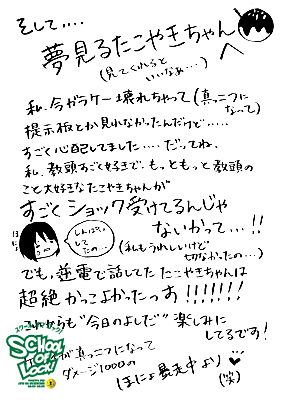 そして....
夢見るたこやきちゃんへ
(見てくれると
いいなぁ...)
私、今ガラケー壊れちゃって(真っ二つに
なって)
掲示板とか見れなかったんだけど.....
すごく心配してました....だってね、
私、教頭すごく好きで、もっともっと教頭の
こと大好きなたこやきちゃんが
すごくショック受けてるんじゃ
ないかって...!!
しんぱい
したの...
(私もうれしいけど
切なかったの...)
でも、逆電で話してた たこやきちゃんは
超絶かっこよかったっす!!!!!!!
これからも"今日のよしだ"楽しみに
してるです!
SCHOOL
OF
LOCK!
が真っ二つになって
ダメージ1000の
(まにょ暴走中より
(笑)